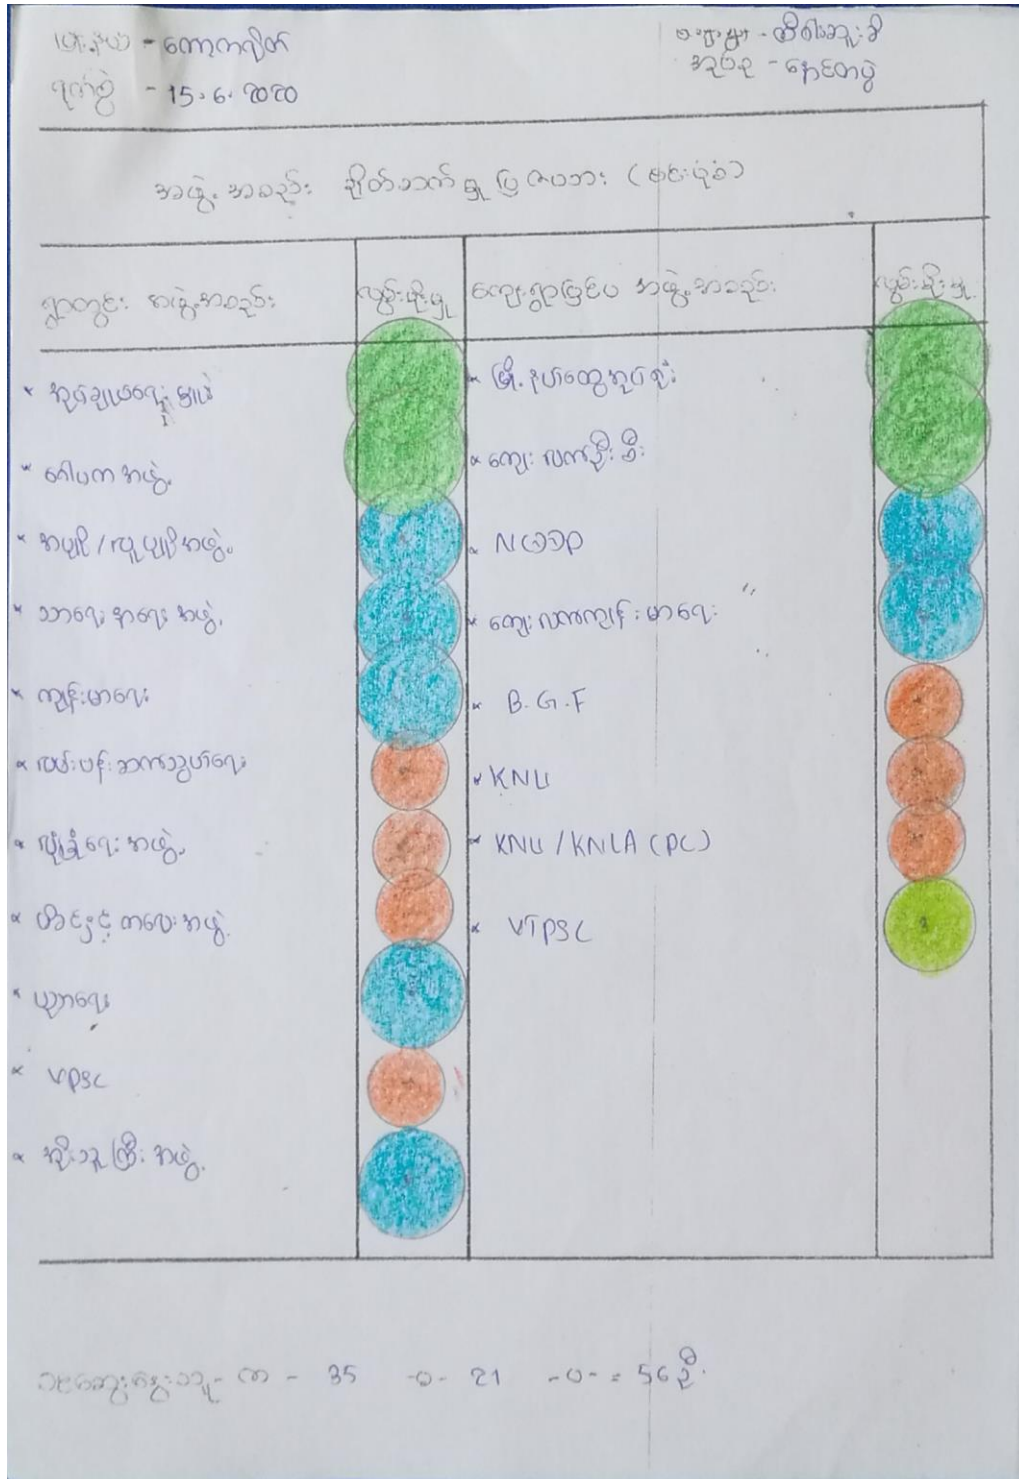 မြို့နယ် - ကော့ကရိတ်
ရက်စွဲ - 15.6.2020
ကျေးရွာ - ထီပါးဆူးခီ
အုပ်စု - နောင်တပွဲ
အဖွဲ့အစည်း ချိတ်ဆက်မှုပြ ဇယား
ရွာတွင်း အဖွဲ့အစည်း
လွှမ်းမိုးမှု
ကျေးရွာပြင်ပ အဖွဲ့အစည်း
လွှမ်းမိုးမှု
အုပ်ချုပ်ရေးမှူး
မြို့နယ်ထွေအုပ်ဦး
ဂေါပကအဖွဲ့
ကျေးလက်ဦးစီး
အပျို/လူပျိုအဖွဲ့
NCDDP
သာရေးနာရေးအဖွဲ့
ကျေးလက်ကျန်းမာရေး
ကျန်းမာရေး
B.G.F
လမ်းပန်းဆက်သွယ်ရေး
KNU
လုံခြုံရေးအဖွဲ့
KNU/KNLA (PC)
မိခင်နှင့် ကလေးအဖွဲ့
VTPSC
ပညာရေး
VPSC
အိုးသူကြီးအဖွဲ့
ဆွေးနွေးသူ - က - 35 -မ- 21 -ပ- = 56 ဦး